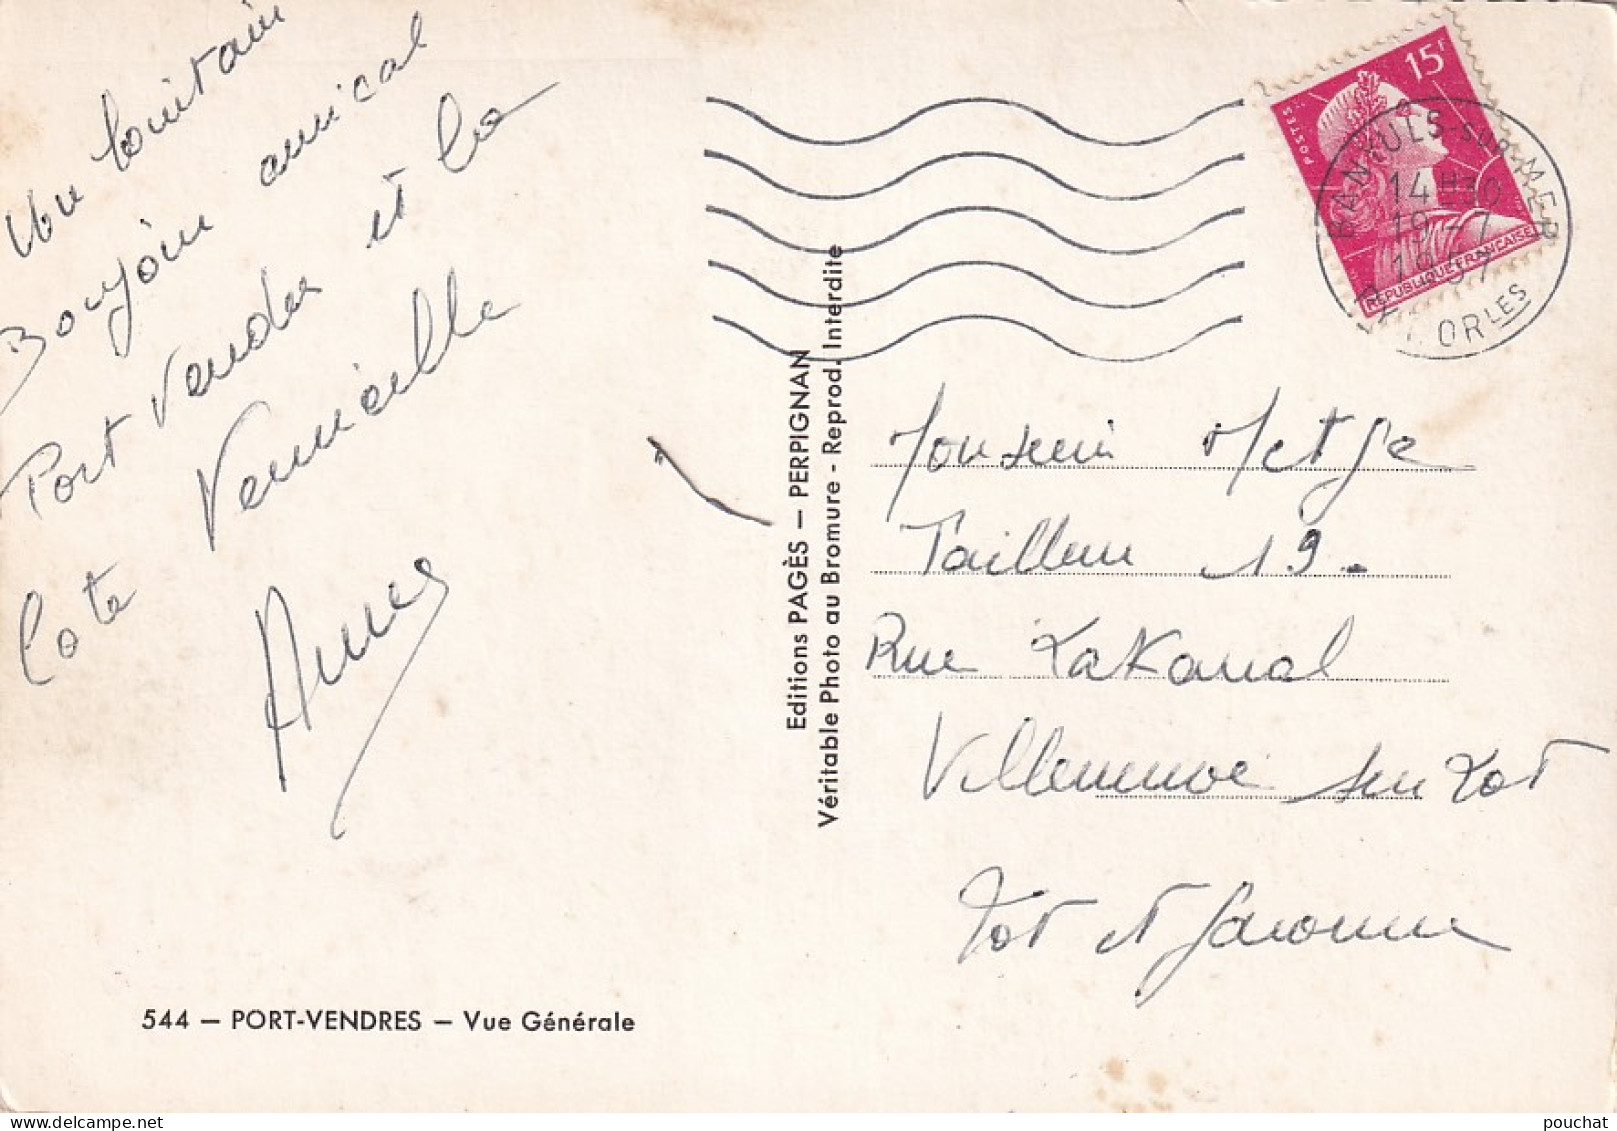 Un lointain
Bonjour amical
Port Vendres et la
Cote Vermeille
544 — PORT-VENDRES — Vue Générale
Editions PAGÈS — PERPIGNAN
Véritable Photo au Bromure - Reprod. Interdite
15F
POSTES
REPUBLIQUE FRANÇAISE
BANYULS-SUR-MER
14H30
19-7
P. ORLES
Monsieur Metge
Tailleur 19.
Rue Lakanal
Villeneuve sur Lot
Lot et Garonne
pouchat